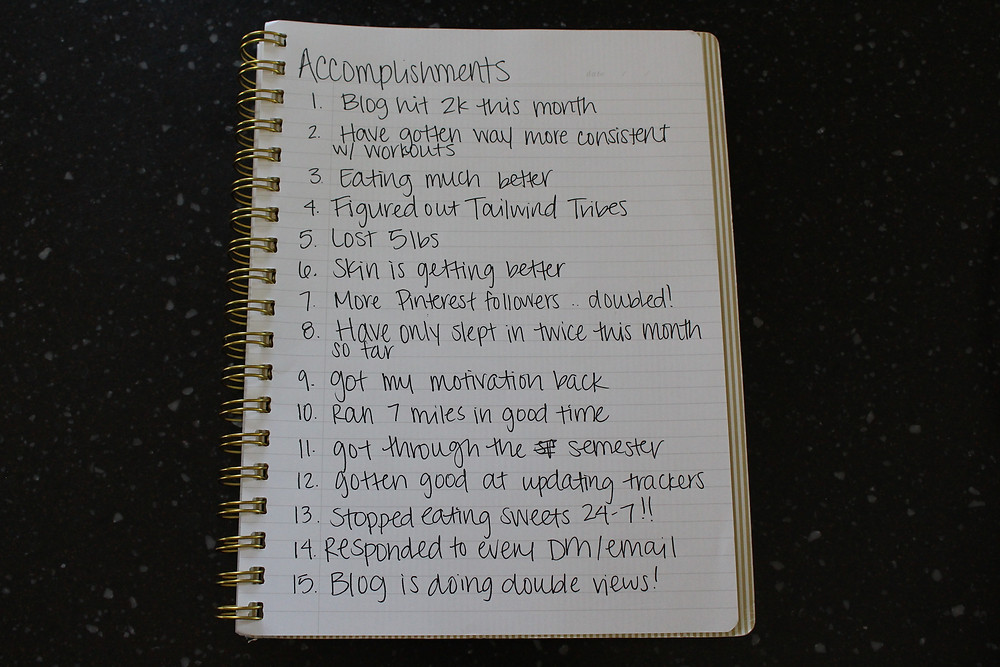 Accomplishments
1. Blog hit 2k this month
2. Have gotten way more consistent
w/ workouts
3. Eating much better
4. Figured out Tailwind Tribes
5. Lost 5lbs
6. Skin is getting better
7. More Pinterest followers .. doubled!
8. Have only slept in twice this month
so far
9. got my motivation back
10. Ran 7 miles in good time
11. got through the semester
12. gotten good at updating trackers
13. Stopped eating sweets 24-7!!
14. Responded to every DM/email
15. Blog is doing double views!